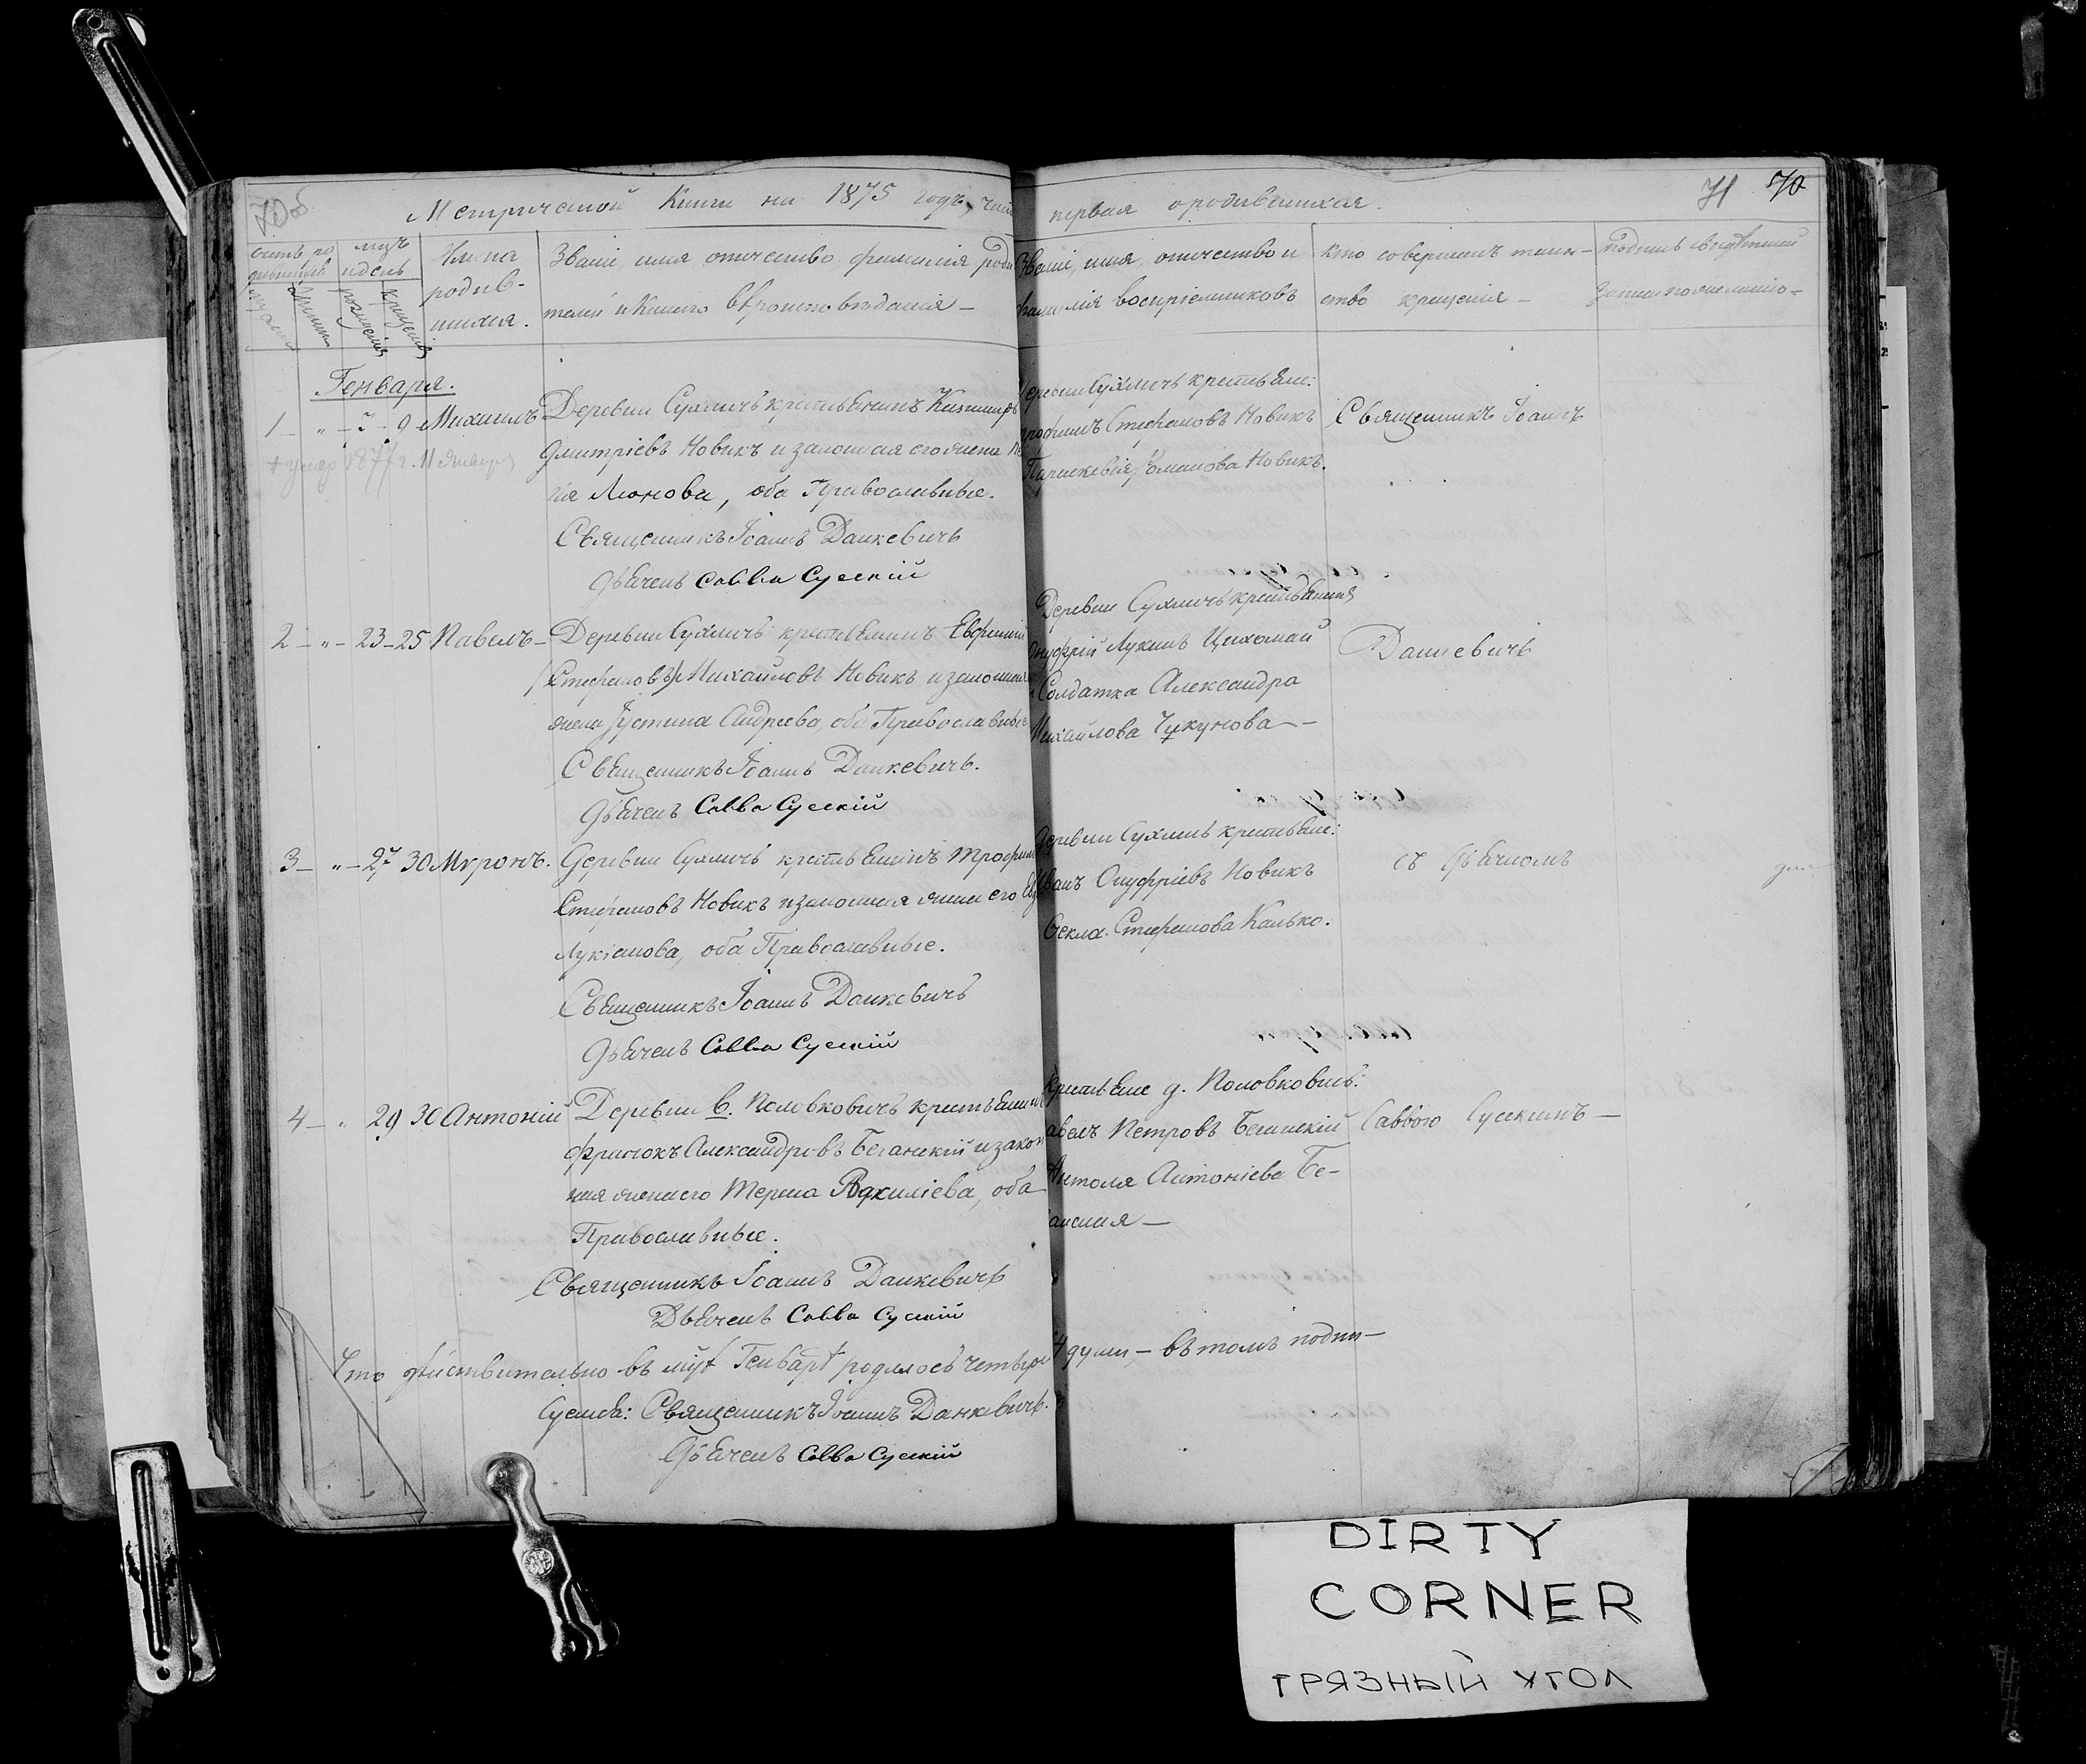 70об
Метрической Книги на 1875 годъ, часть
первая о родившихся.
71 70
мцъ
и день
рожденія
крещенія
Имена
родив-
шихся.
Званіе, имя отчество, фамилія роди
телей и какого вѣроисповѣданія —
Званіе, имя, отчество и
фамилія воспріемниковъ
кто совершилъ таин-
ство крещенія —
Генваря.
1 — " — 7 — 9 Михаилъ
+ умеръ 1877 г. 11 Января
Деревни Сухличъ крестьянинъ Казимиръ
Дмитріевъ Новикъ и законная его жена
Леонова, оба Православные.
Священникъ Іоаннъ Данкевичъ
Дьячекъ Савва Сускій
Деревни Сухличъ крестьяне:
Трофимъ Стефановъ Новикъ
Параскевія Романова Новикъ.
Священникъ Іоаннъ
2 — " — 23 — 25 Павелъ —
Деревни Сухличъ крестьянинъ Евфимій
(Стефановъ) Михайловъ Новикъ и законная
жена Іустина Андреева, оба Православные
Священникъ Іоаннъ Данкевичъ.
Дьячекъ Савва Сускій
Деревни Сухличъ крестьянинъ
Онуфрій Лукинъ Цихомай
и Солдатка Александра
Михайлова Чукунова —
Данкевичъ
3 — " — 27 30 Миронъ.
Деревни Сухличъ крестьянинъ Трофимъ
Стефановъ Новикъ и законная жена его
Лукіанова, оба Православные.
Священникъ Іоаннъ Данкевичъ
Дьячекъ Савва Сускій
Деревни Сухличъ крестьяне:
Иванъ Онуфріевъ Новикъ
Ѳекла Стефанова Калько.
съ Дьячкомъ
4 — " 29 30 Антоній
Деревни В. Половковичъ крестьянинъ
Францюкъ Александровъ Беганскій и закон
ная жена его Тереса, оба
Православные.
Священникъ Іоаннъ Данкевичъ
Дьячекъ Савва Сускій
Крестьяне д. Половковичъ:
Павелъ Петровъ Беганскій
Антоля Антоніева Бе-
ганская —
Саввою Сускимъ —
Что дѣйствительно въ мцѣ Генварѣ родилось четыре
4 души, — въ томъ подпи-
суемся: Священникъ Іоаннъ Данкевичъ.
Дьячекъ Савва Сускій
DIRTY
CORNER
ГРЯЗНЫЙ УГОЛ